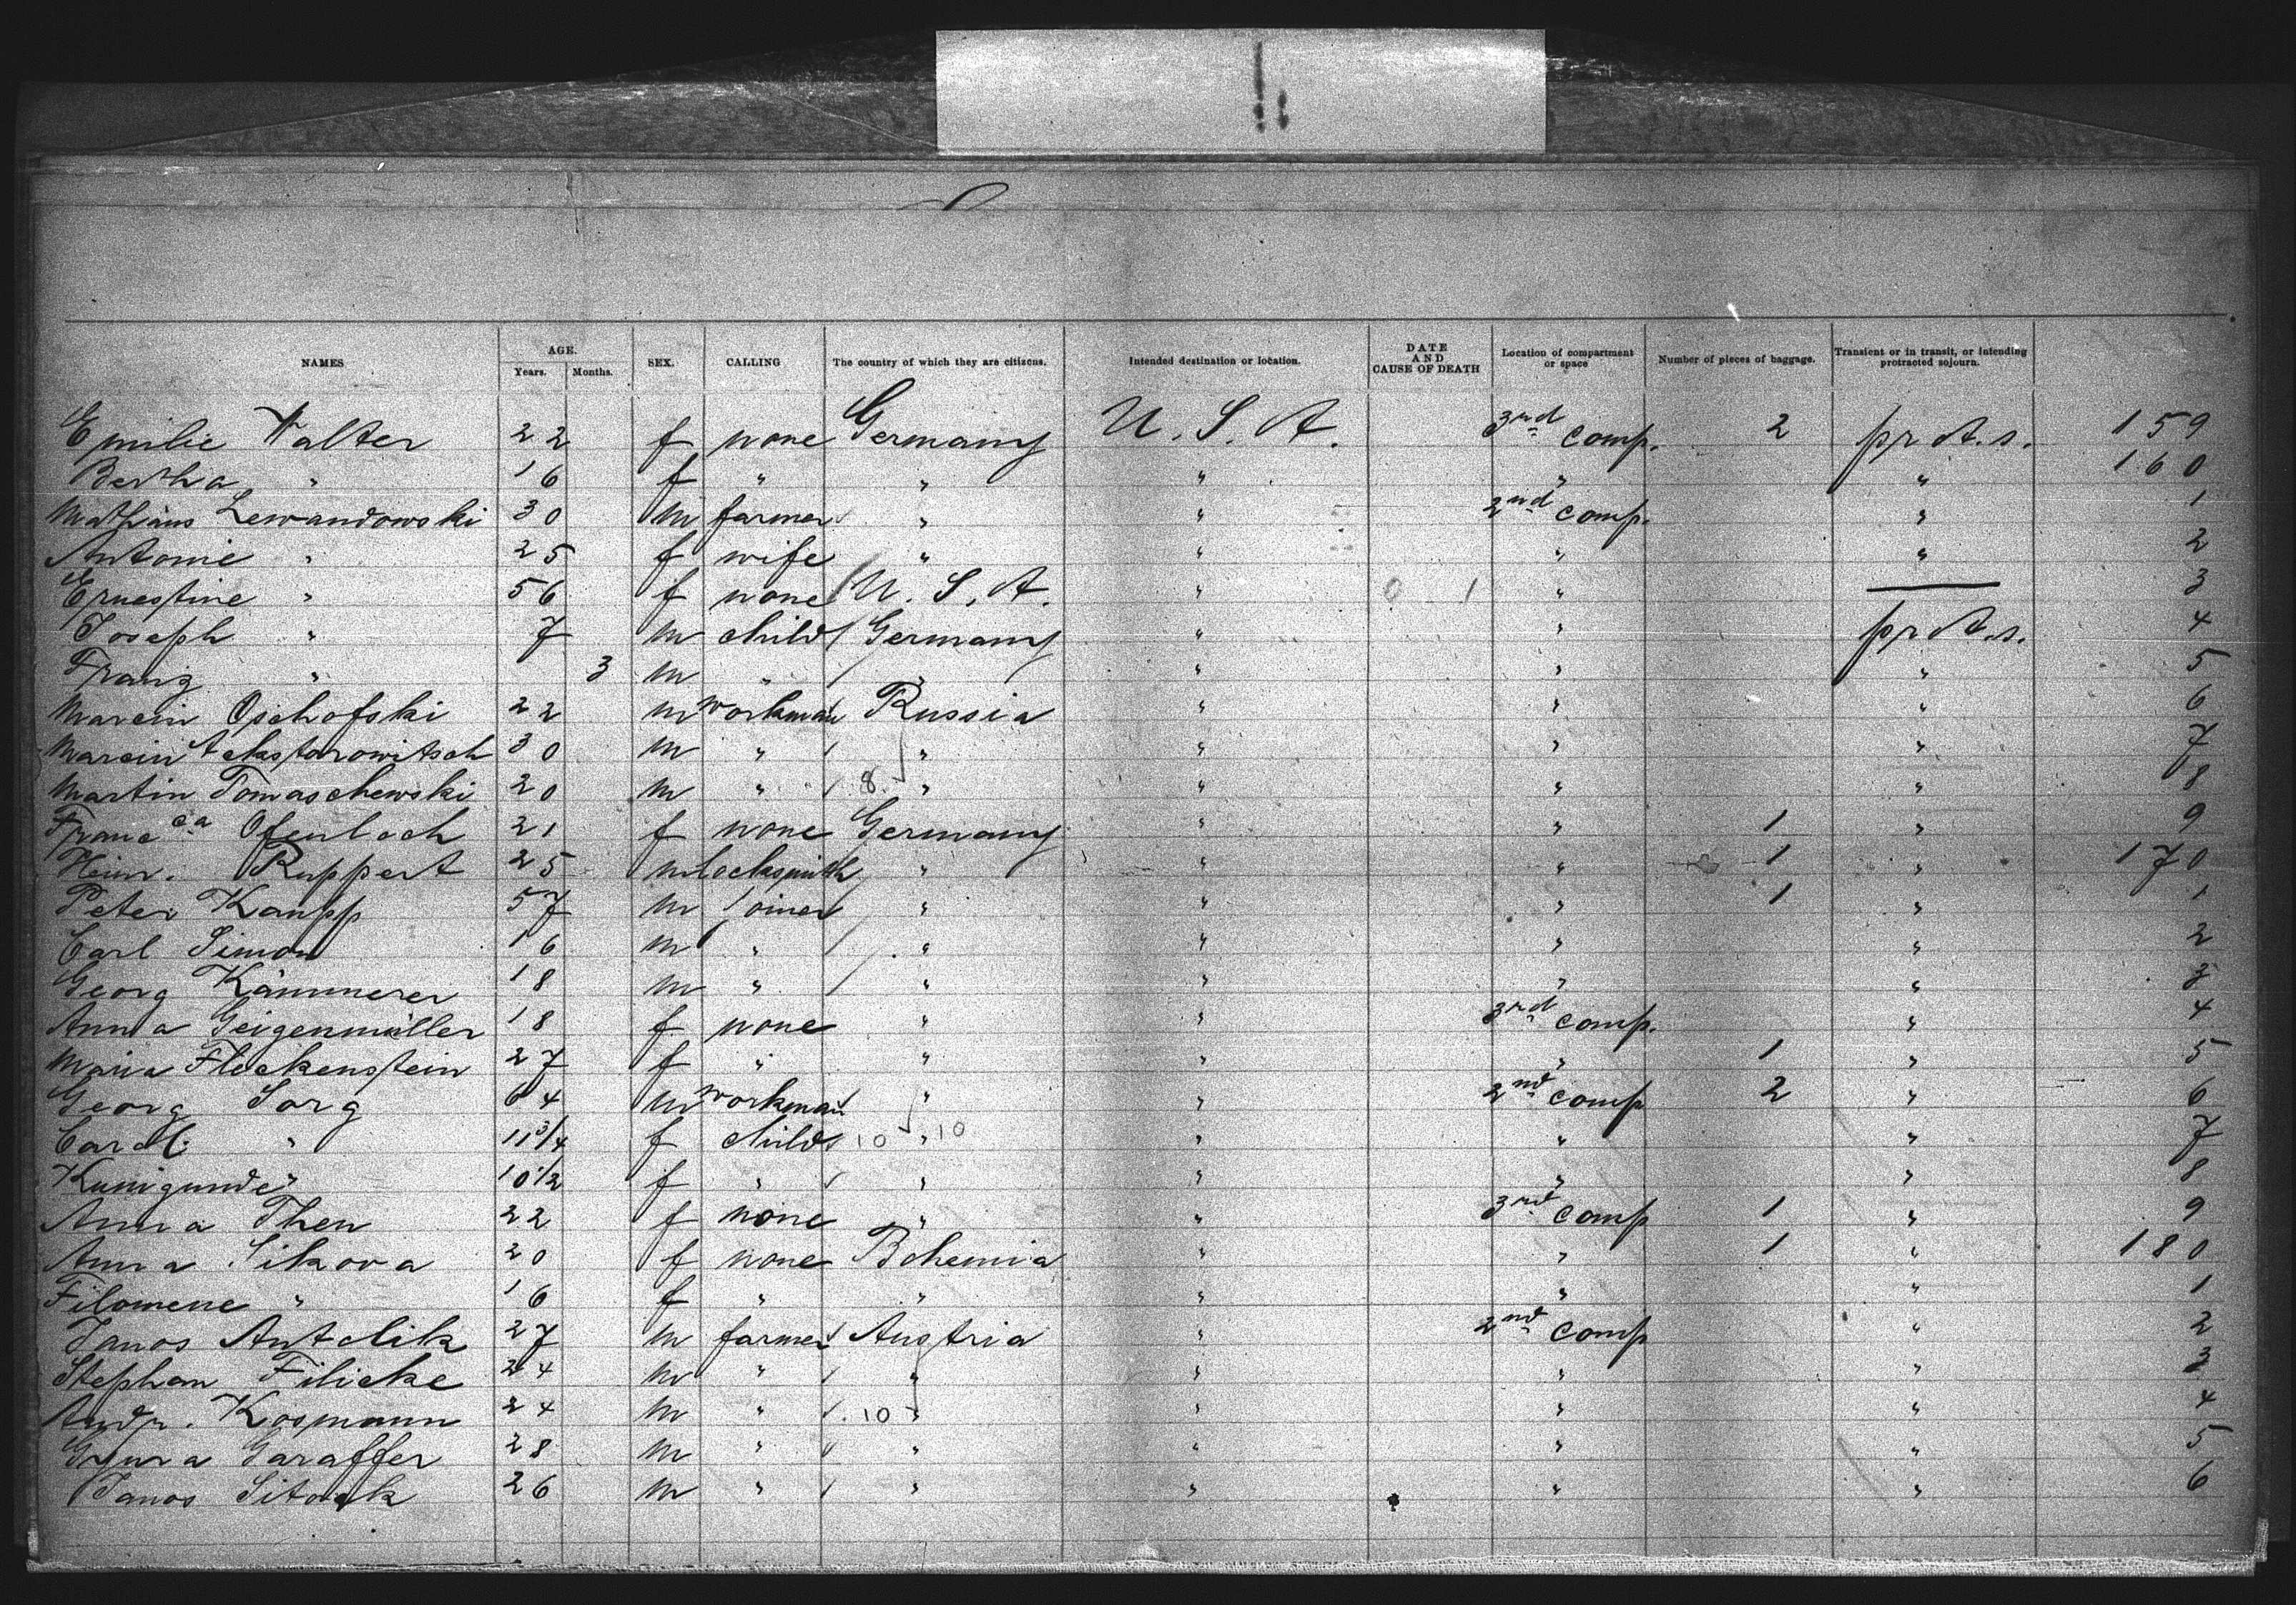 NAMES AGE. Years. Months. SEX. CALLING The country of which they are citizens. Intended destination or location. DATE AND CAUSE OF DEATH Location of compartment or space Number of pieces of baggage. Transient or in transit, or intending protracted sojourn.
Emilie Walter 22 f none Germany U. S. A. 3rd comp. 2 prot. s. 159
Bertha " 16 f " " " " " 160
Mathäus Lewandowski 30 m farmer " " 2nd comp. " 1
Antonie " 25 f wife " " " " 2
Ernestine " 56 f none U. S. A. " 0 1 " — 3
Joseph " 7 m child Germany " " prot. s. 4
Franz " 3 m " " " " " 5
Marcin Oschofski 22 m workman Russia " " " 6
Marcin Ackstarowitsch 30 m " " " " " 7
Martin Tomaschewski 20 m " 8 " " " " 8
Franc ca Ofenloch 21 f none Germany " " 1 " 9
Heinr. Ruppert 25 m locksmith " " " 1 " 170
Peter Kaupp 57 m joiner " " " 1 " 1
Carl Simon 16 m " " " " " 2
Georg Kämmerer 18 m " " " " " 3
Anna Geigenmüller 18 f none " " 3rd comp. " 4
Maria Fleckenstein 27 f " " " " 1 " 5
Georg Sorg 64 m workman " " 2nd comp 2 " 6
Carol. " 11 3/4 f child 10 " 10 " " " 7
Kunigunde " 10 1/2 f " " " " " 8
Anna Then 22 f none " " 3rd comp 1 " 9
Anna Sikora 20 f none Bohemia " " 1 " 180
Filomene " 16 f " " " " " 1
Janos Antolik 27 m farmer Austria " 2nd comp " 2
Stephan Filicke 24 m " " " " " 3
Andr. Kosmann 24 m " 10 " " " " 4
Garaffer 28 m " " " " " 5
Janos 26 m " " " " " 6